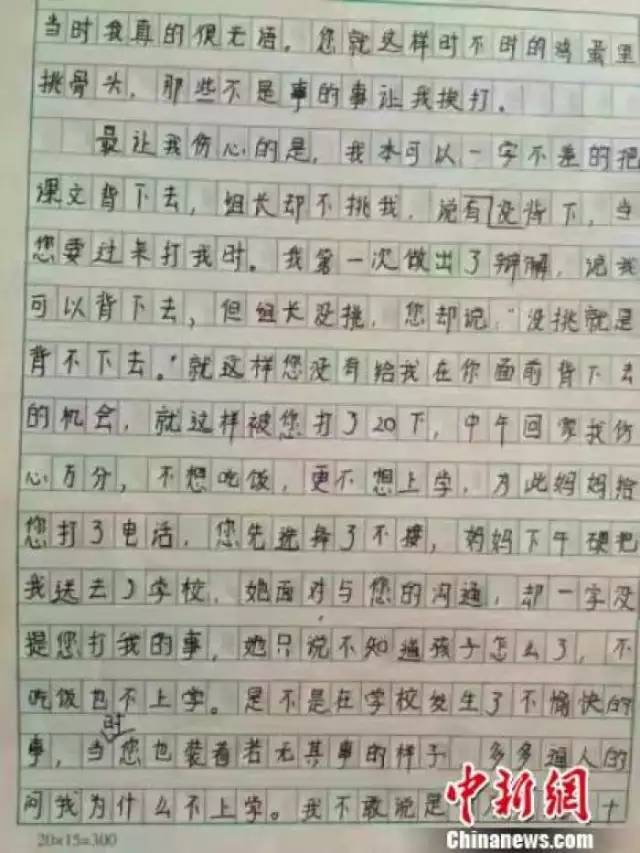 当时我真的很无语。您就这样时不时的鸡蛋里
挑骨头，那些不是事的事让我挨打。
最让我伤心的是，我本可以一字不差的把
课文背下去，组长却不挑我，说有没背下，当
您要过来打我时。我第一次做出了辩解，说我
可以背下去，但组长没挑，您却说，“没挑就是
背不下去。”就这样您没有给我在你面前背下去
的机会，就这样被您打了20下，中午回家我伤
心万分，不想吃饭，更不想上学，为此妈妈给
您打了电话，您先选择了不接，妈妈下午硬把
我送去了学校，她面对与您的沟通，却一字没
提您打我的事，她只说不知道孩子怎么了，不
吃饭也不上学。是不是在学校发生了不愉快的
时
事，当您也装着若无其事的样子，多多逼人的
问我为什么不上学。我不敢说是
十
20×15=300
中新網
Chinanews.com